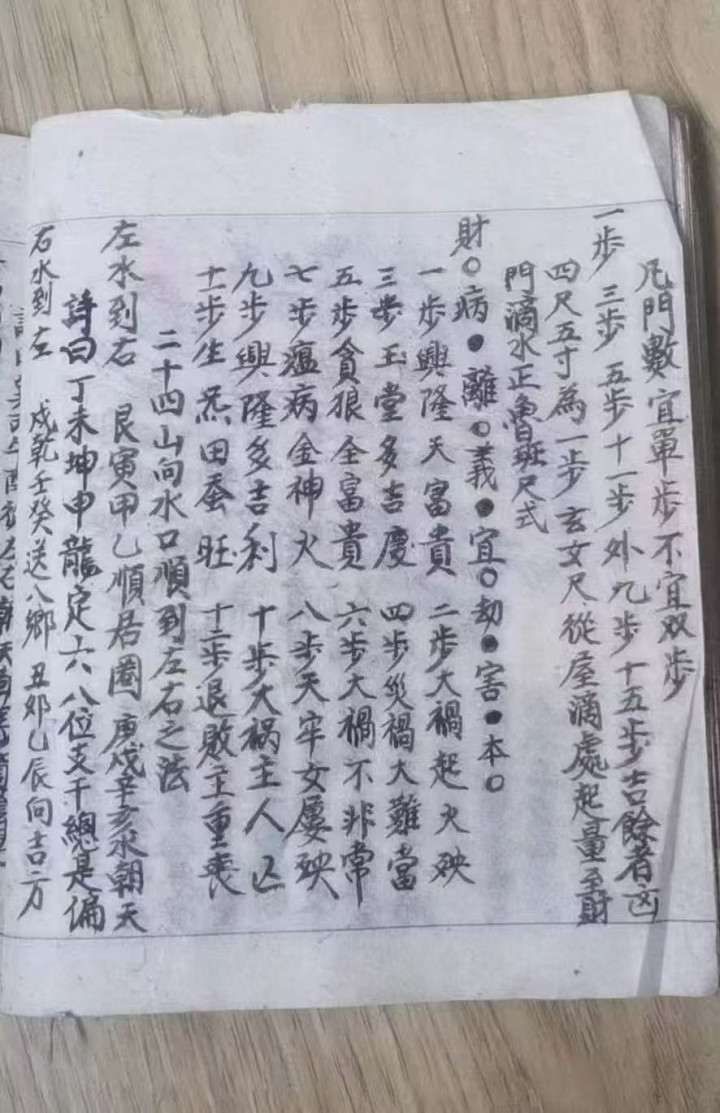 凡門數宜單步不宜双步
一步 三步 五步 十一步外九步十五步吉餘者凶
四尺五寸為一步玄女尺從屋滴處起量至財
門滴水正魯班尺式
財○病●離○義●宜○劫●害●本○
一步興隆天富貴 二步大禍起火殃
三步玉堂多吉慶 四步災禍大難當
五步貪狼全富貴 六步大禍不非常
七步瘟病金神火 八步天牢女屢殃
九步興隆多吉利 十步大祸主人亡
十一步生炁田蚕旺 十二步退敗主重喪
二十四山向水口順到左右之法
左水到右 艮寅甲乙順居圈 庚戌辛亥水朝天
詩曰丁未坤申龍定六 八位支干總是偏
右水到左 戍乾壬癸送八鄉 丑卯乙辰向吉方